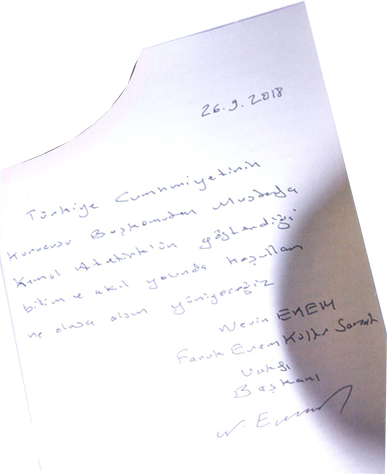 26.9.2018
Türkiye Cumhuriyetinin
Kurucusu Başkomutan Mustafa
Kemal Atatürk'ün gösterdiği
bilim ve akıl yolunda koşullar
ne olursa olsun yürüyeceğiz
Nevin EREM
Faruk Erem Kültür Sanat
Vakfı
Başkanı